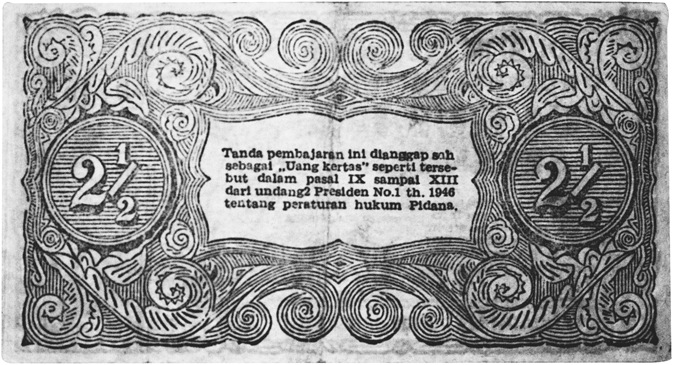 Tanda pembajaran ini dianggap sah
sebagai „Uang kertas" seperti terse-
but dalam pasal IX sampai XIII
dari undang2 Presiden No.1 th. 1946
tentang peraturan hukum Pidana.
2 1/2
2 1/2